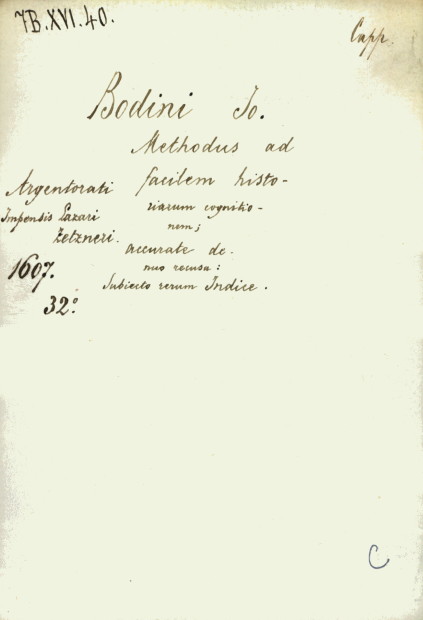 7B.XVI.40.
Capp.
Bodini Jo.
Methodus ad
facilem histo-
riarum cognitio-
nem;
accurate de-
nuo recusa:
Subiecto rerum Indice.
Argentorati
Impensis Lazari
Zetzneri.
1607.
32°.
C